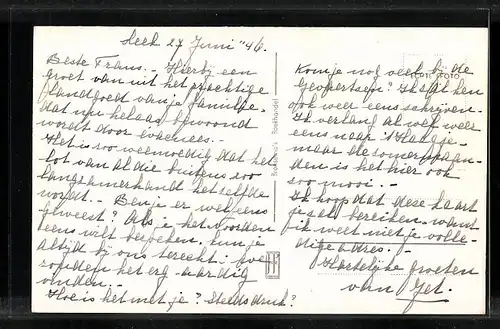 Leek 27 Juni "46.
Beste Frans. - Hierbij een
groet van uit het prachtige
landgoed van je familie.
dat nu helaas bewoond
wordt door evacuees. -
Het is zoo weemoedig dat het
lot van al die buitens zoo
langzamerhand hetzelfde
wordt. - Ben je er wel eens
geweest? Als je het voorden
eens wilt bezoeken, kun je
altijd bij ons terecht. Zoe
zouden het erg aardig
vinden. -
Hoe is het met je? Steeds druk?
Boekhandel
FOTO
Kom je nog veel bij de
Gevaertsen? Ik zal hen
ook weer eens schrijven.
Ik verlang al weer
eens naar 't Haagje.
maar die zomermaan-
den is het hier ook
zoo mooi. -
Ik hoop dat deze kaart
je zal bereiken, want
ik weet niet je volle-
dige adres. -
Hartelijke groeten
van Jet.